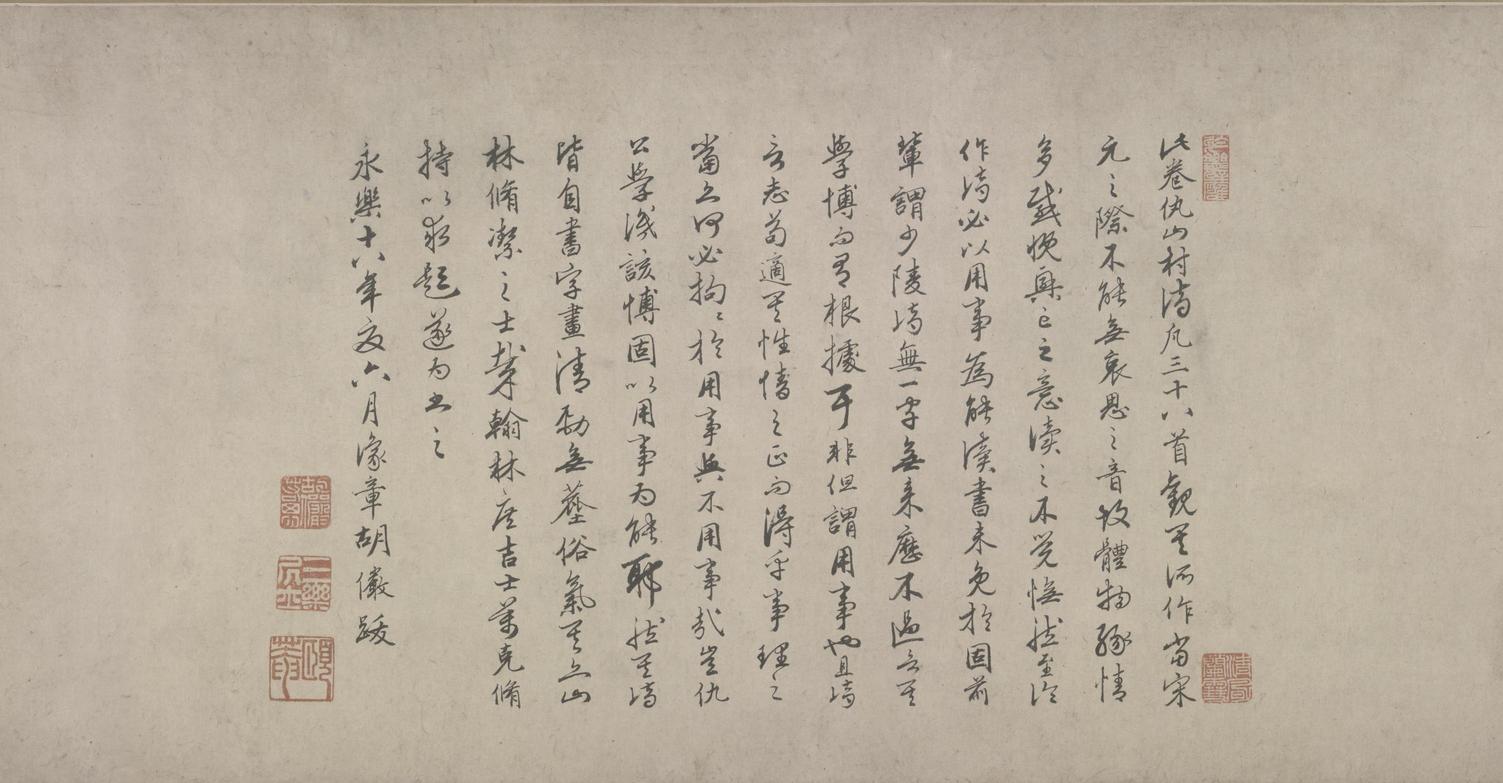 此卷仇山村詩凡三十八首觀其所作當宋
元之際不能無哀思之音故體物緣情
多感慨興亡之意讀之不覺憮然至論
作詩必以用事為能讀書未免於固前
輩謂少陵詩無一字無來歷不過言其
學博而有根據耳非但謂用事也且詩
言志苟適其性情之正而得乎事理之
當六何必拘拘於用事與不用事哉豈仇
公學識該博固以用事為能耶然其詩
皆自書字畫清勁無塵俗氣其亦山
林脩潔之士哉翰林庶吉士萬克脩
持以求題遂為書之
永樂十八年夏六月豫章胡儼跋
胡儼